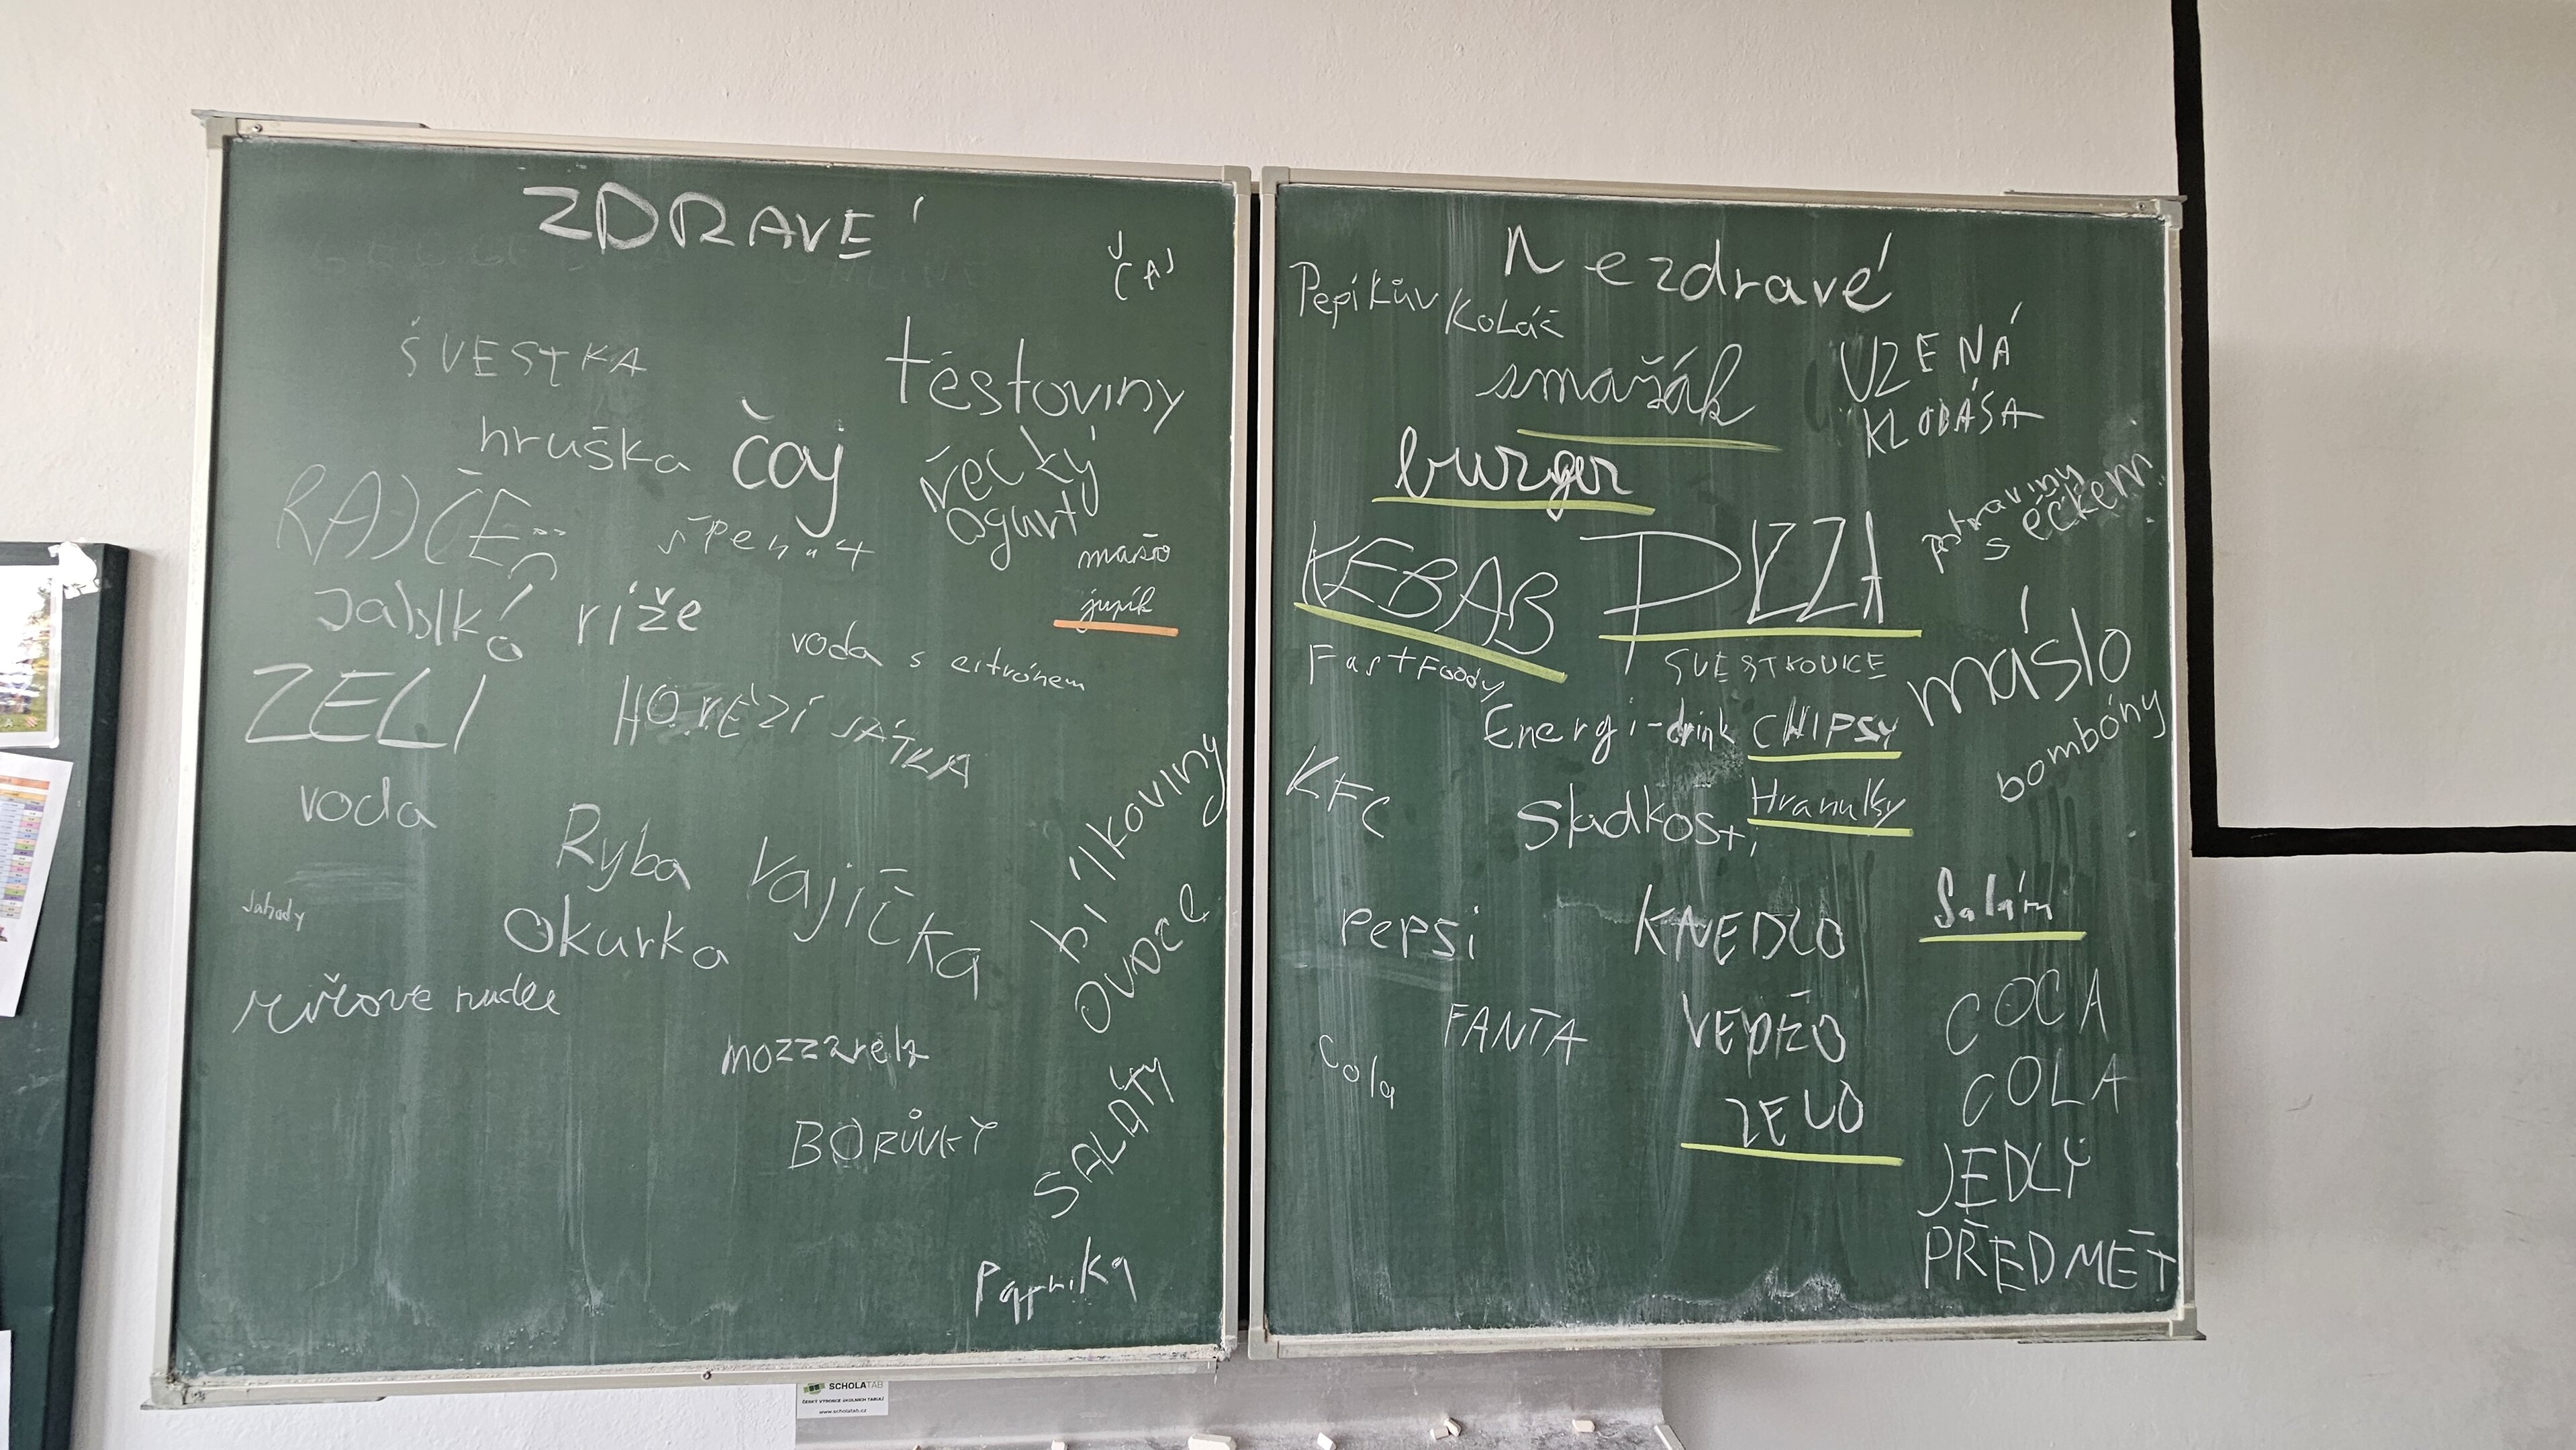 ZDRAVÉ
ČAJ
ŠVESTKA
těstoviny
hruška
čaj
řecký
ogurt
RAJČE
špenát
maso
jupík
Jablko
ríže
voda s citrónem
ZELÍ
HOVĚZÍ
voda
Ryba
Vajíčka
bílkoviny
Jahody
Okurka
ovoce
rýžové nudle
mozzarela
BORŮVKY
SALÁTY
Paprika
Nezdravé
Pepíkův Koláč
smažák
UZENÁ
KLOBÁSA
burger
potraviny
s éčkem
KEBAB
PIZZA
FastFoody
máslo
Energi-drink
CHIPSY
bombóny
KFC
Sladkosti
Hranulky
Pepsi
KNEDLO
Salám
FANTA
VEPŘO
COCA
Cola
COLA
ZELO
JEDLÝ
PŘEDMĚT
SCHOLATAB
ČESKÝ VÝROBCE ŠKOLNÍCH TABULÍ
www.scholatab.cz